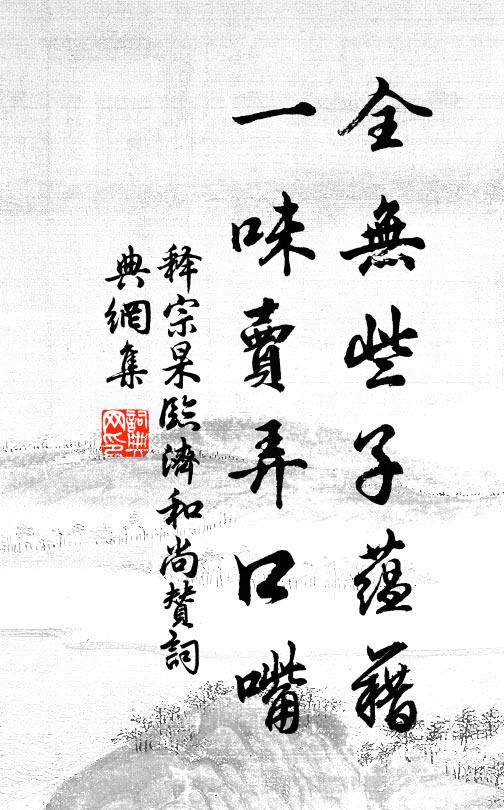 全無些子蕴藉
一味賣弄口嘴
释宗杲臨濟和尚赞詞
典網集
詞典
网印